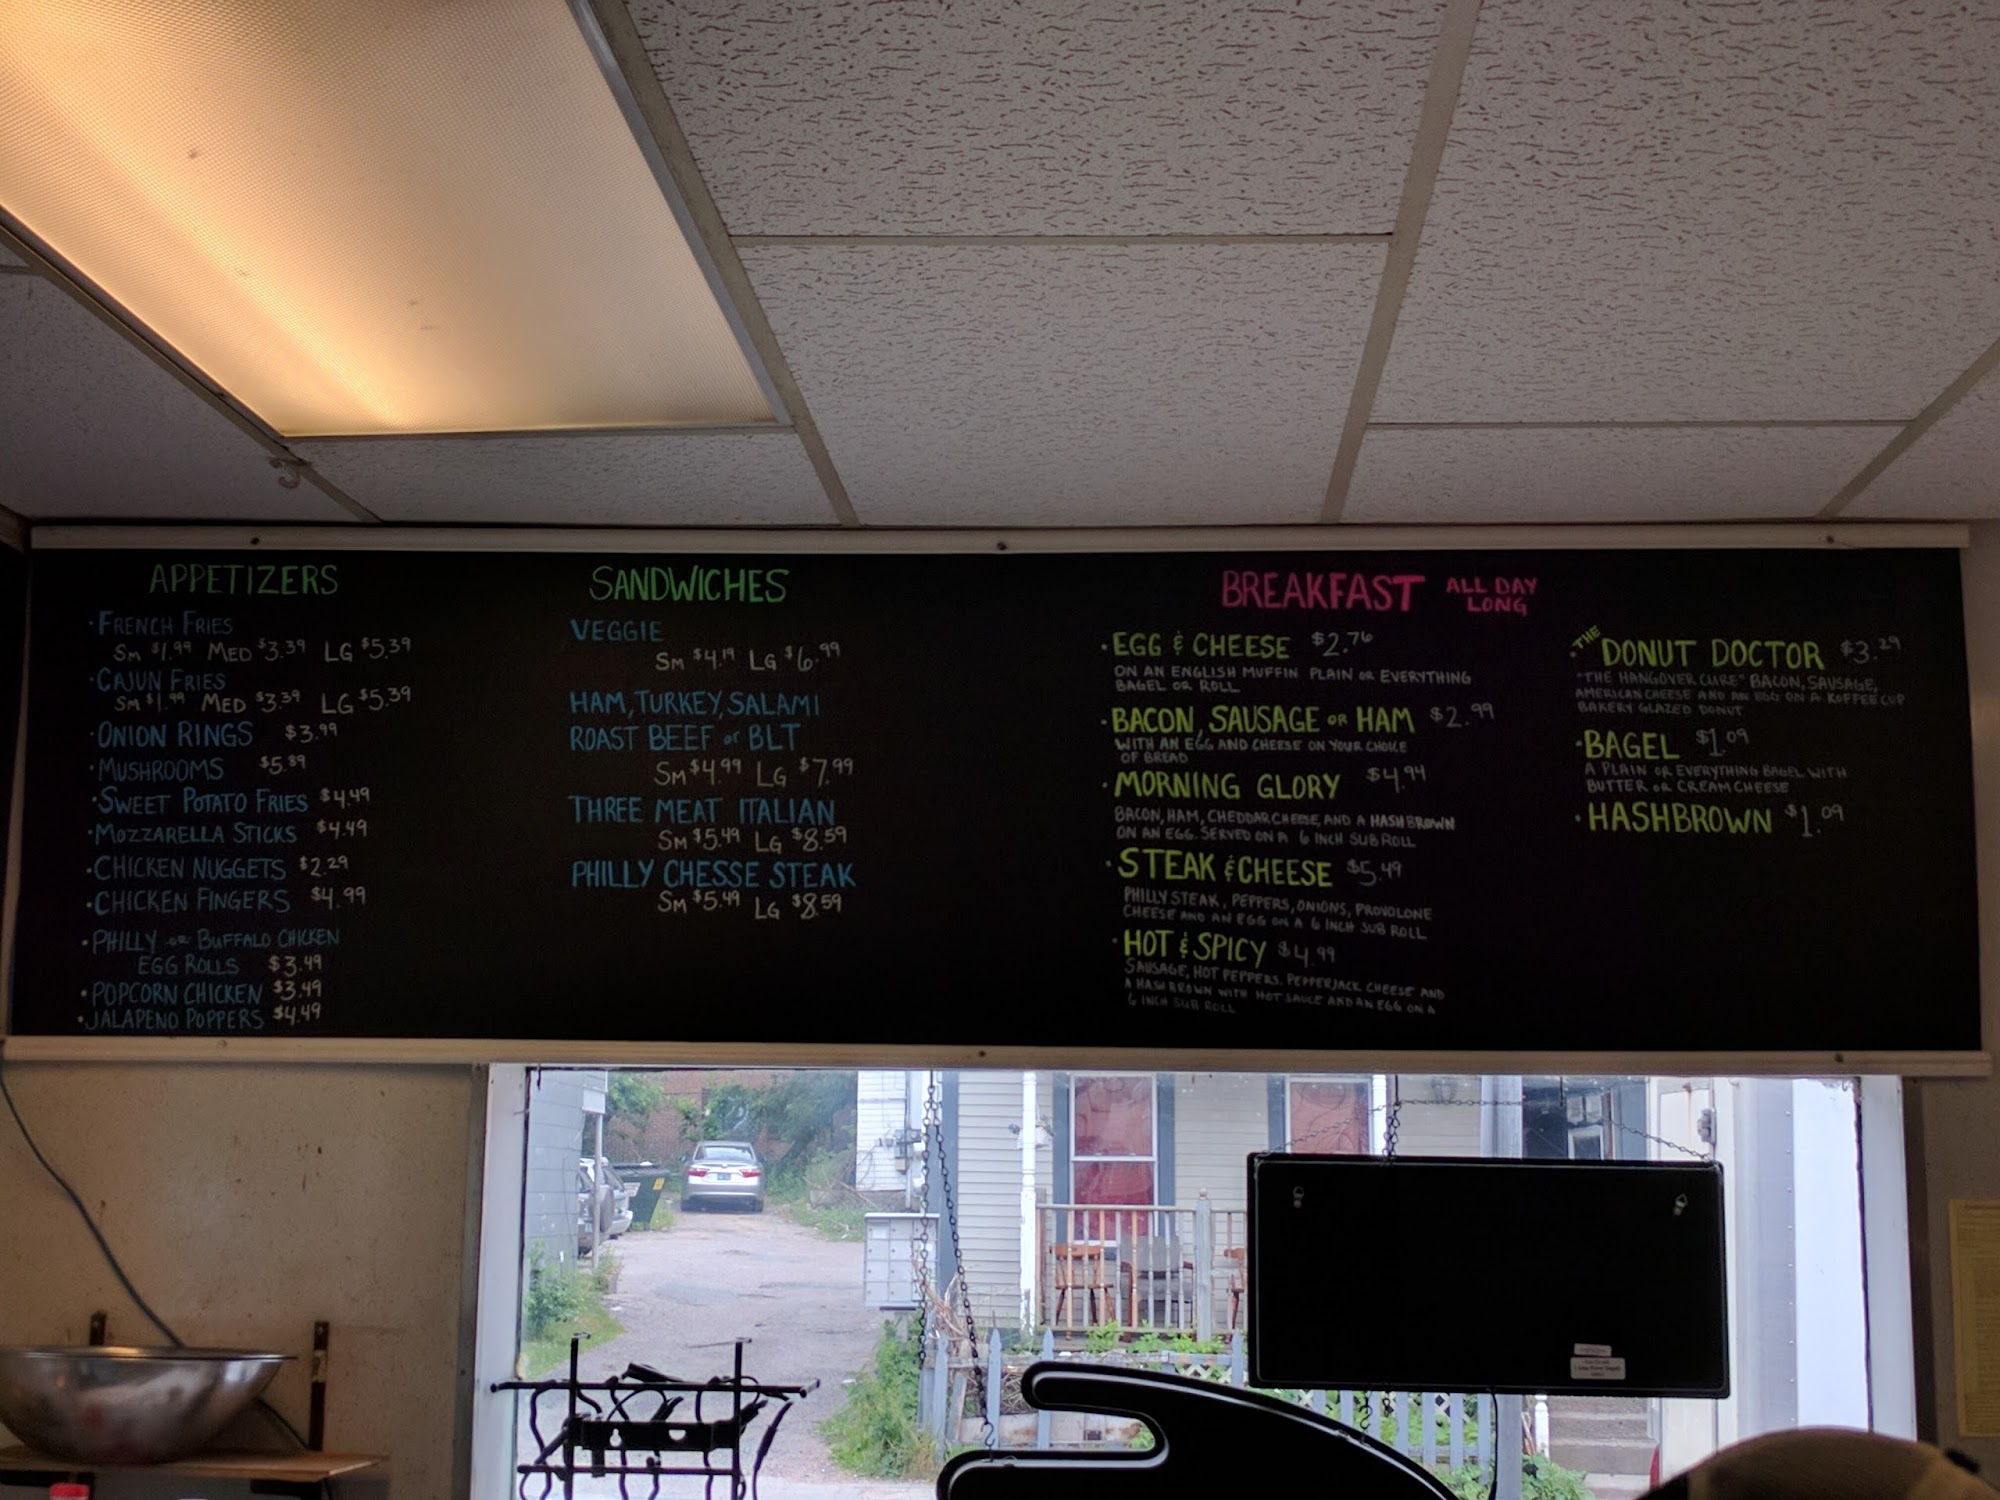 APPETIZERS
• FRENCH FRIES
SM $1.99 MED $3.39 LG $5.39
• CAJUN FRIES
SM $1.99 MED $3.39 LG $5.39
• ONION RINGS $3.99
• MUSHROOMS $5.89
• SWEET POTATO FRIES $4.49
• MOZZARELLA STICKS $4.49
• CHICKEN NUGGETS $2.29
• CHICKEN FINGERS $4.99
• PHILLY OR BUFFALO CHICKEN
EGG ROLLS $3.49
• POPCORN CHICKEN $3.49
• JALAPENO POPPERS $4.49
SANDWICHES
VEGGIE
SM $4.19 LG $6.99
HAM, TURKEY, SALAMI
ROAST BEEF or BLT
SM $4.99 LG $7.99
THREE MEAT ITALIAN
SM $5.49 LG $8.59
PHILLY CHESSE STEAK
SM $5.49 LG $8.59
BREAKFAST ALL DAY
LONG
• EGG & CHEESE $2.76
ON AN ENGLISH MUFFIN PLAIN OR EVERYTHING
BAGEL OR ROLL
• BACON, SAUSAGE OR HAM $2.99
WITH AN EGG AND CHEESE ON YOUR CHOICE
OF BREAD
• MORNING GLORY $4.94
BACON, HAM, CHEDDAR CHEESE, AND A HASHBROWN
ON AN EGG. SERVED ON A 6 INCH SUB ROLL
• STEAK & CHEESE $5.49
PHILLY STEAK, PEPPERS, ONIONS, PROVOLONE
CHEESE AND AN EGG ON A 6 INCH SUB ROLL
• HOT & SPICY $4.99
SAUSAGE, HOT PEPPERS, PEPPERJACK CHEESE AND
A HASHBROWN WITH HOT SAUCE AND AN EGG ON A
6 INCH SUB ROLL
• THE DONUT DOCTOR $3.29
"THE HANGOVER CURE" BACON, SAUSAGE,
AMERICAN CHEESE AND AN EGG ON A KOFFEE CUP
BAKERY GLAZED DONUT
• BAGEL $1.09
A PLAIN OR EVERYTHING BAGEL WITH
BUTTER OR CREAM CHEESE
• HASHBROWN $1.09